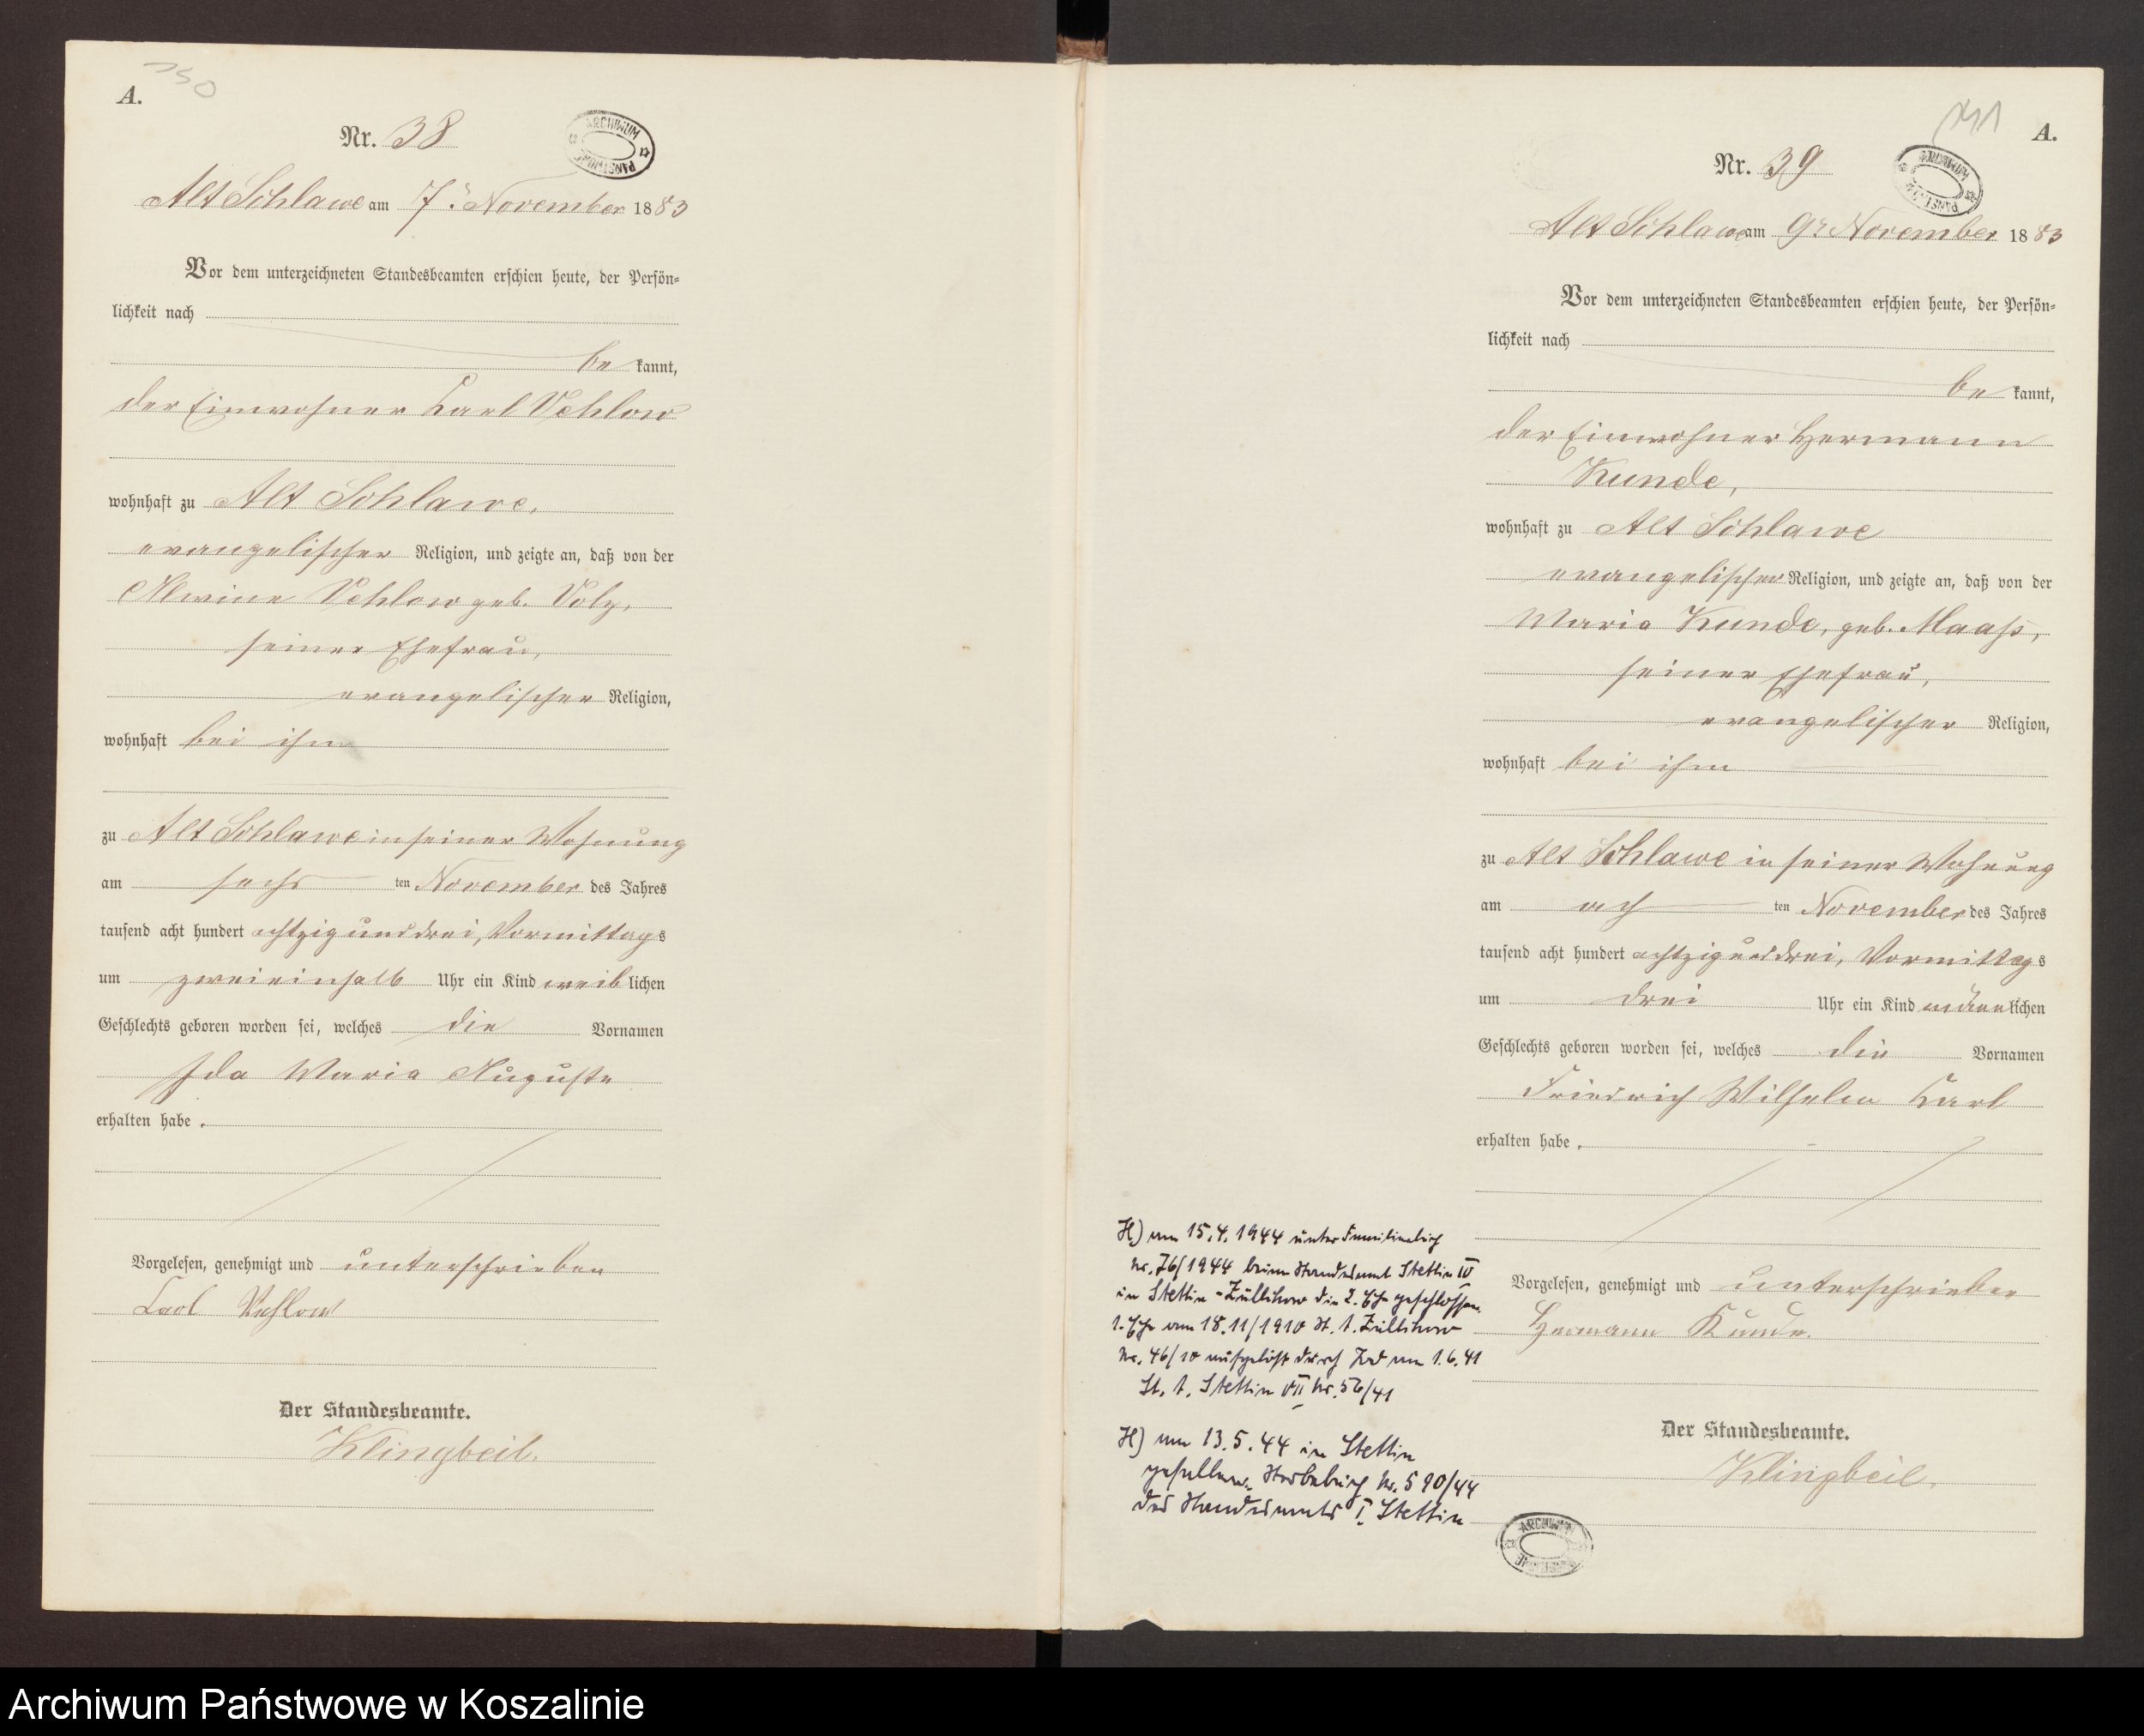 A.
Nr. 38
ARCHIWUM
Alt Schlawe am 7. November 1883
Vor dem unterzeichneten Standesbeamten erschien heute, der Persön-
lichkeit nach
be kannt,
der Einwohner Carl Vehlow
wohnhaft zu Alt Schlawe,
evangelischer Religion, und zeigte an, daß von der
Alwine Vehlow geb. Volz,
seiner Ehefrau,
evangelischer Religion,
wohnhaft bei ihm
zu Alt Schlawe in seiner Wohnung
am sechs ten November des Jahres
tausend acht hundert achtzig und drei, Vormittags
um zweieinhalb Uhr ein Kind weiblichen
Geschlechts geboren worden sei, welches die Vornamen
Ida Maria Auguste
erhalten habe.
Vorgelesen, genehmigt und unterschrieben
Carl Vehlow
Der Standesbeamte.
Klingbeil.
A.
Nr. 39
ARCHIWUM
Alt Schlawe am 9. November 1883
Vor dem unterzeichneten Standesbeamten erschien heute, der Persön-
lichkeit nach
be kannt,
der Einwohner Hermann
Kunde,
wohnhaft zu Alt Schlawe
evangelischer Religion, und zeigte an, daß von der
Maria Kunde, geb. Maaß,
seiner Ehefrau,
evangelischer Religion,
wohnhaft bei ihm
zu Alt Schlawe in seiner Wohnung
am ach ten November des Jahres
tausend acht hundert achtzig und drei, Vormittags
um drei Uhr ein Kind männlichen
Geschlechts geboren worden sei, welches die Vornamen
Friedrich Wilhelm Carl
erhalten habe.
Vorgelesen, genehmigt und unterschrieben
Hermann Kunde.
Der Standesbeamte.
Klingbeil.
ARCHIWUM
H) am 15.4.1944 unter Familienbuch
Nr. 76/1944 beim Standesamt Stettin IV
in Stettin-Züllchow die 2. Ehe geschlossen.
1. Ehe vom 18.11/1910 St. A. Züllchow
Nr. 46/10 aufgelöst durch Tod am 1.6.41
St. A. Stettin VII Nr. 56/41
H) am 13.5.44 in Stettin
gefallen. Sterbebuch Nr. 590/44
des Standesamts I Stettin
Archiwum Państwowe w Koszalinie